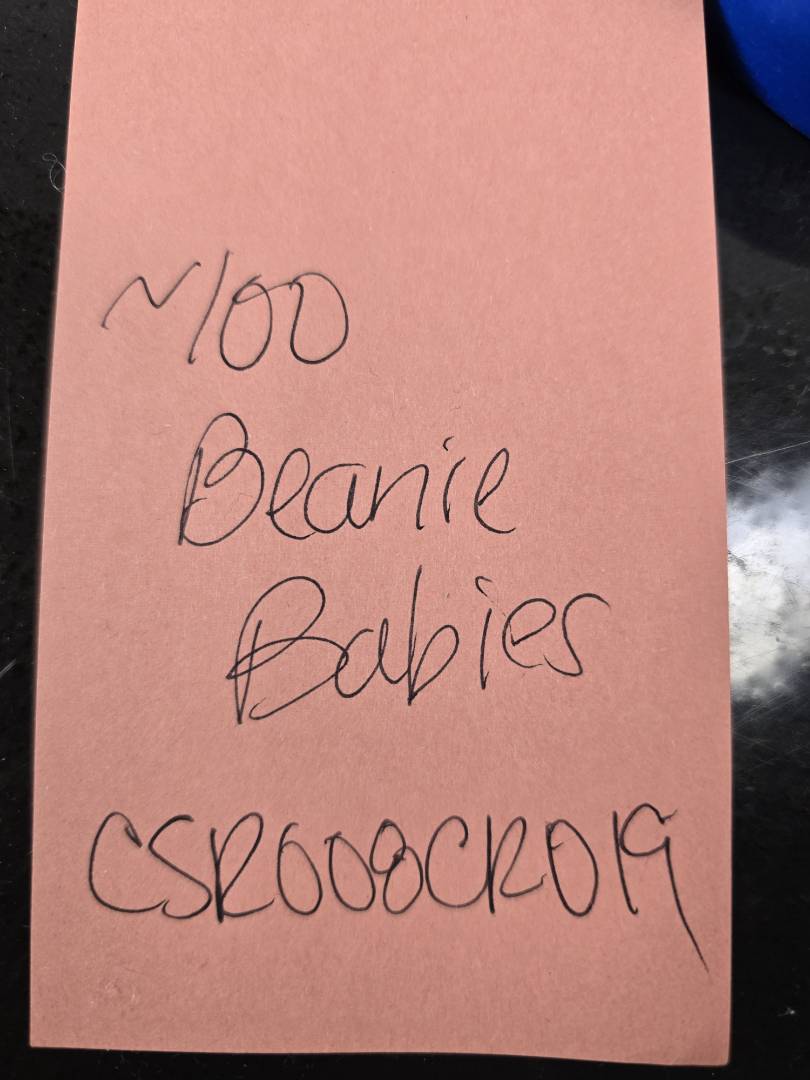 ~100
Beanie
Babies
CSR008CR019